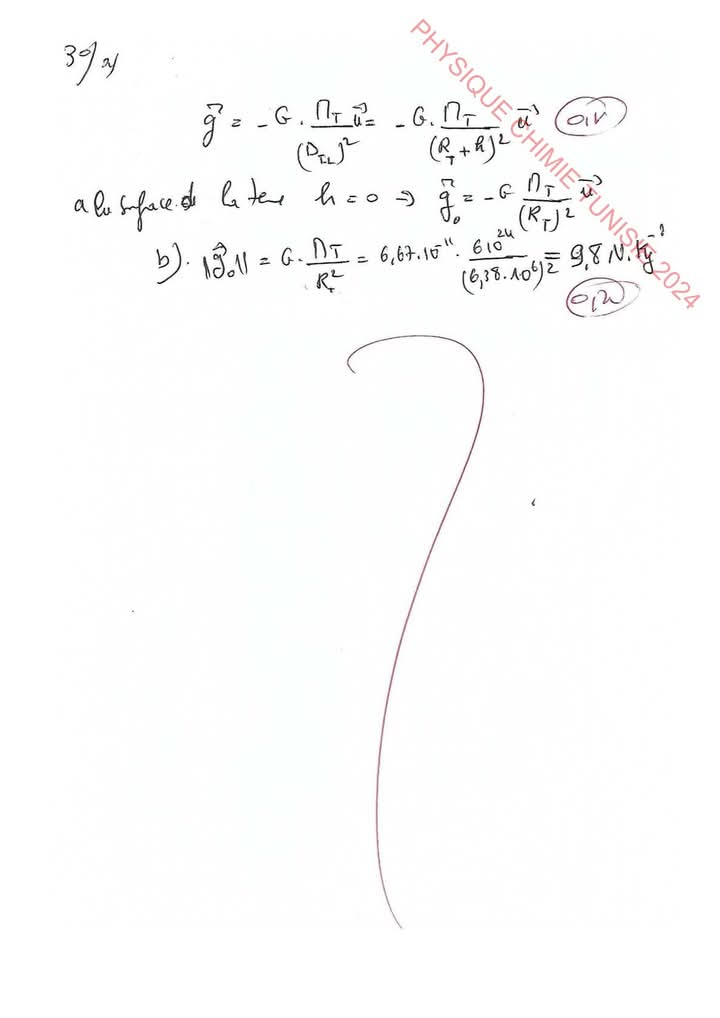 3°/a/
g⃗ = - G . M_T/(D_TL)² u⃗ = - G . M_T/(R_T + h)² u⃗
a la surface de la terre h = 0 ⇒ g⃗₀ = - G M_T/(R_T)² u⃗
b). ||g⃗₀|| = G . M_T/R_T² = 6,67.10⁻¹¹ . 6 10²⁴/(6,38.10⁶)² = 9,8 N.Kg⁻¹
PHYSIQUE CHIMIE TUNISIE 2024